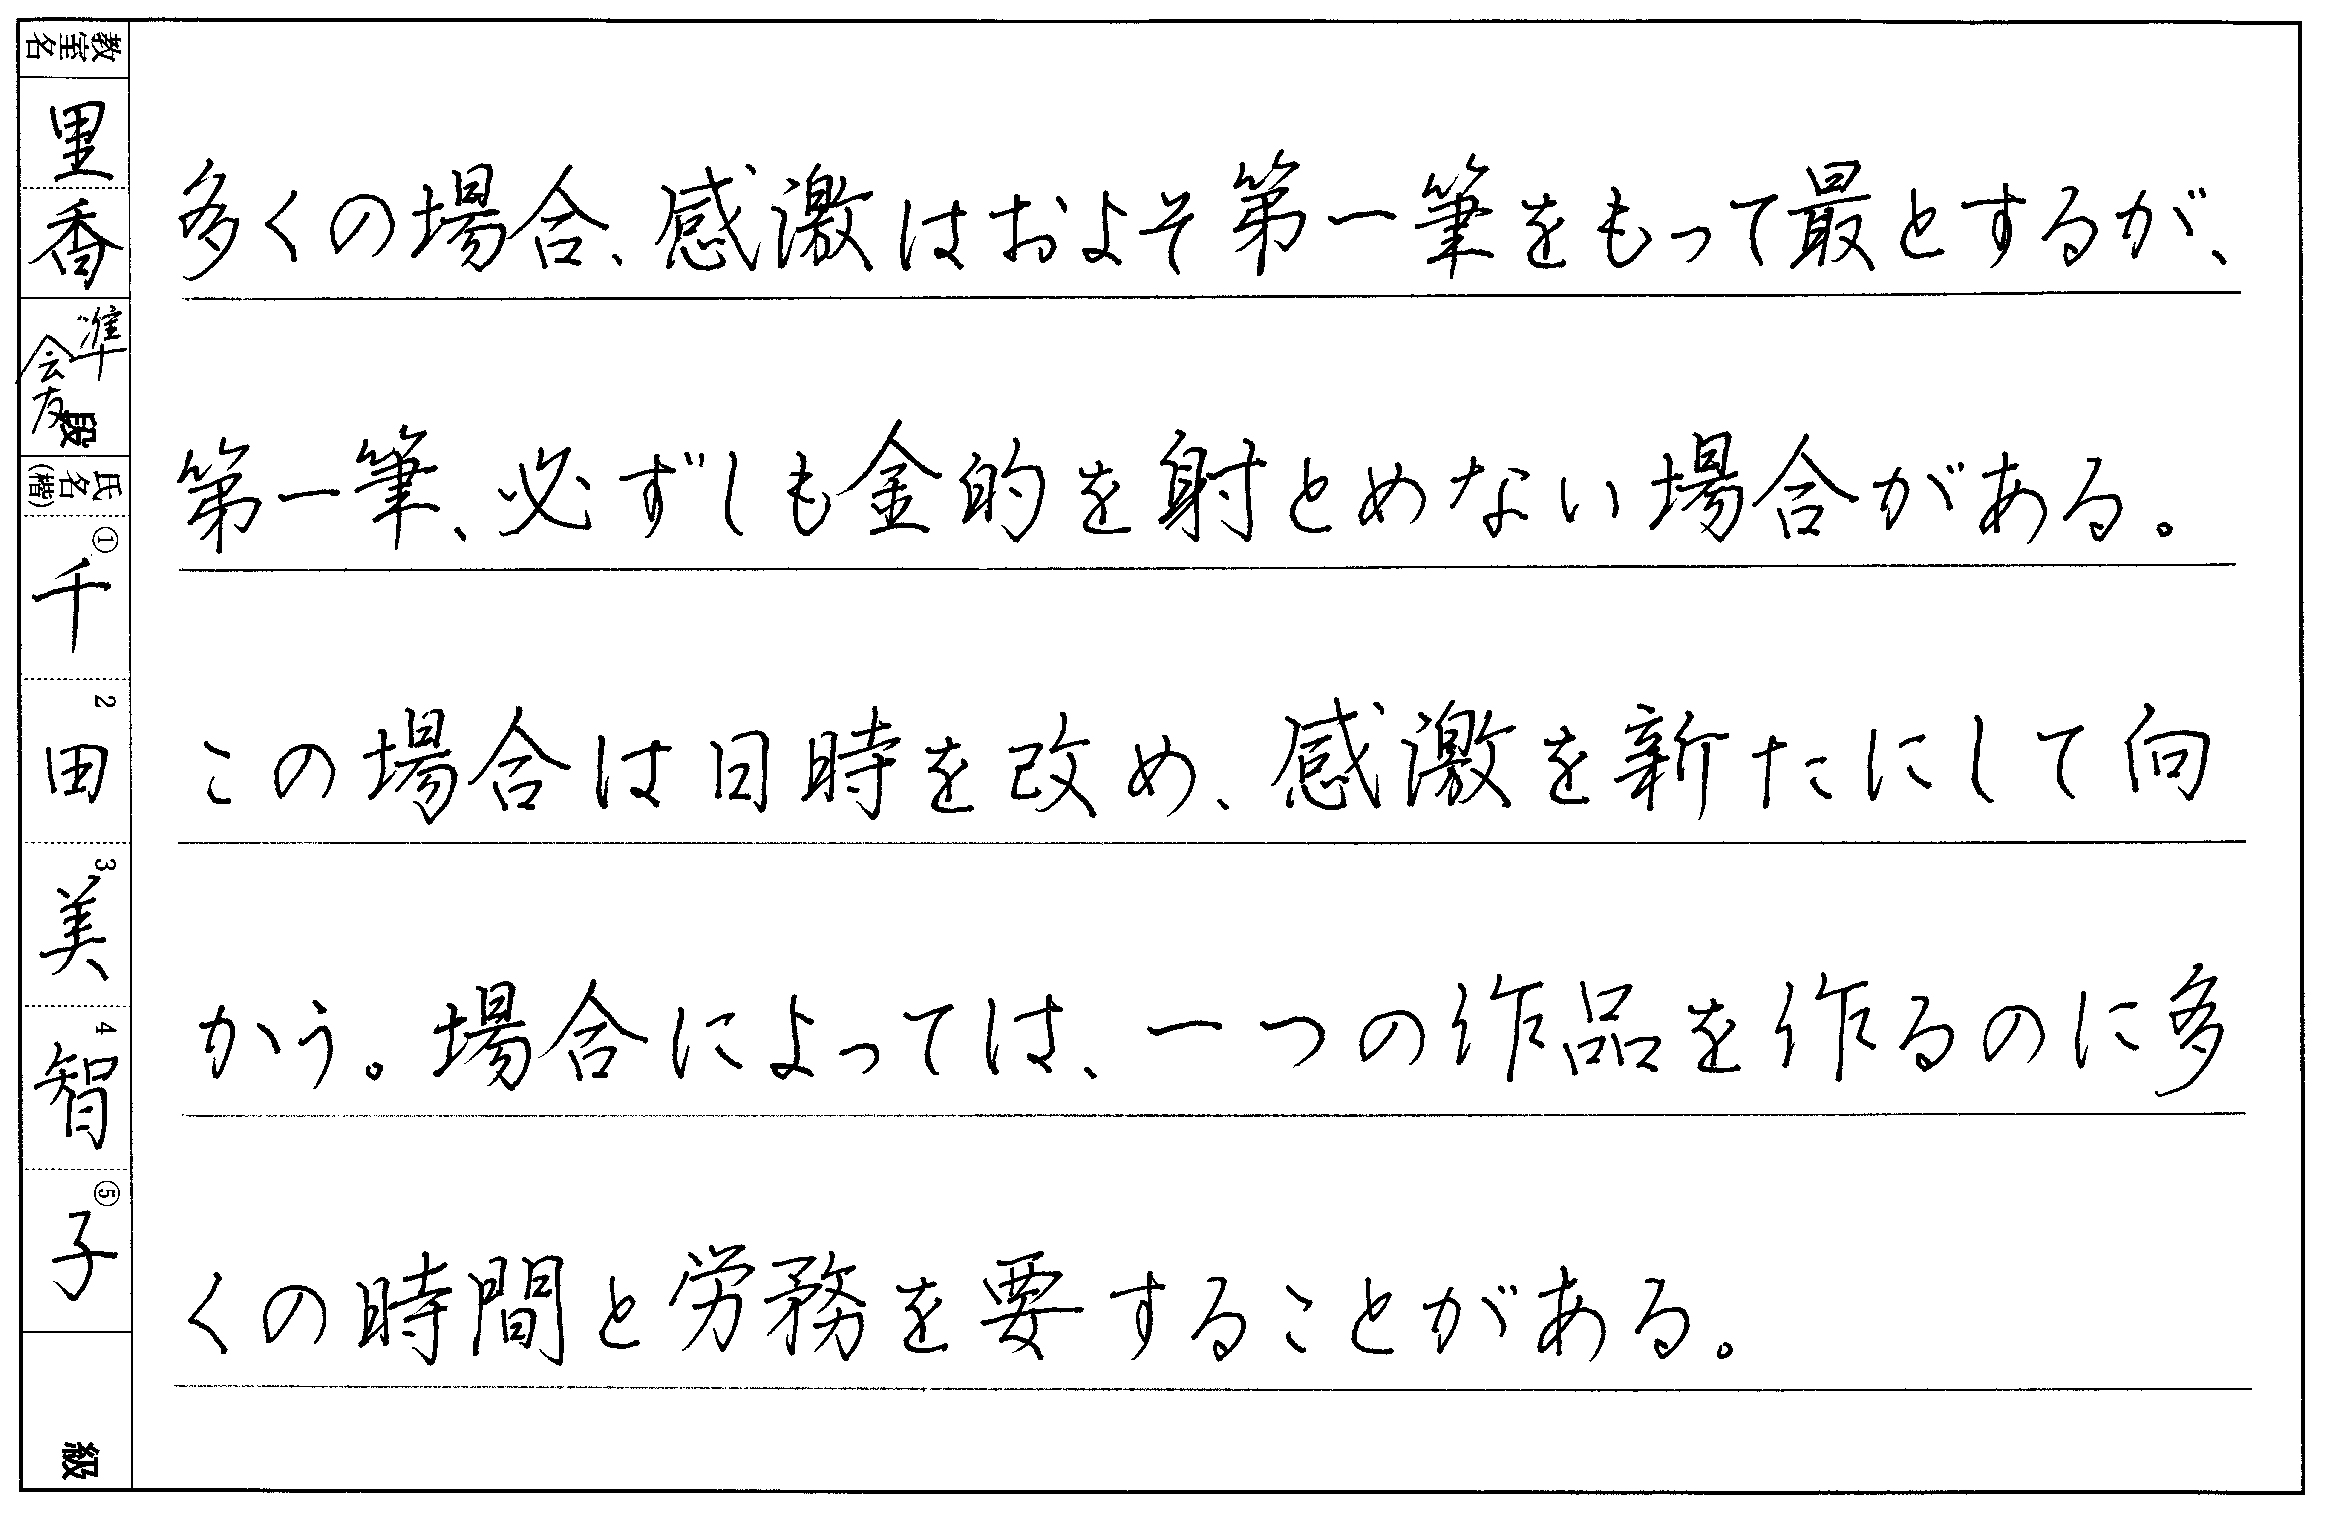 教室名
里香
準会友
段
氏名(楷)
①千
2田
3美
4智
⑤子
級
多くの場合、感激はおよそ第一筆をもって最とするが、
第一筆、必ずしも金的を射とめない場合がある。
この場合は日時を改め、感激を新たにして向
かう。場合によっては、一つの作品を作るのに多
くの時間と労務を要することがある。